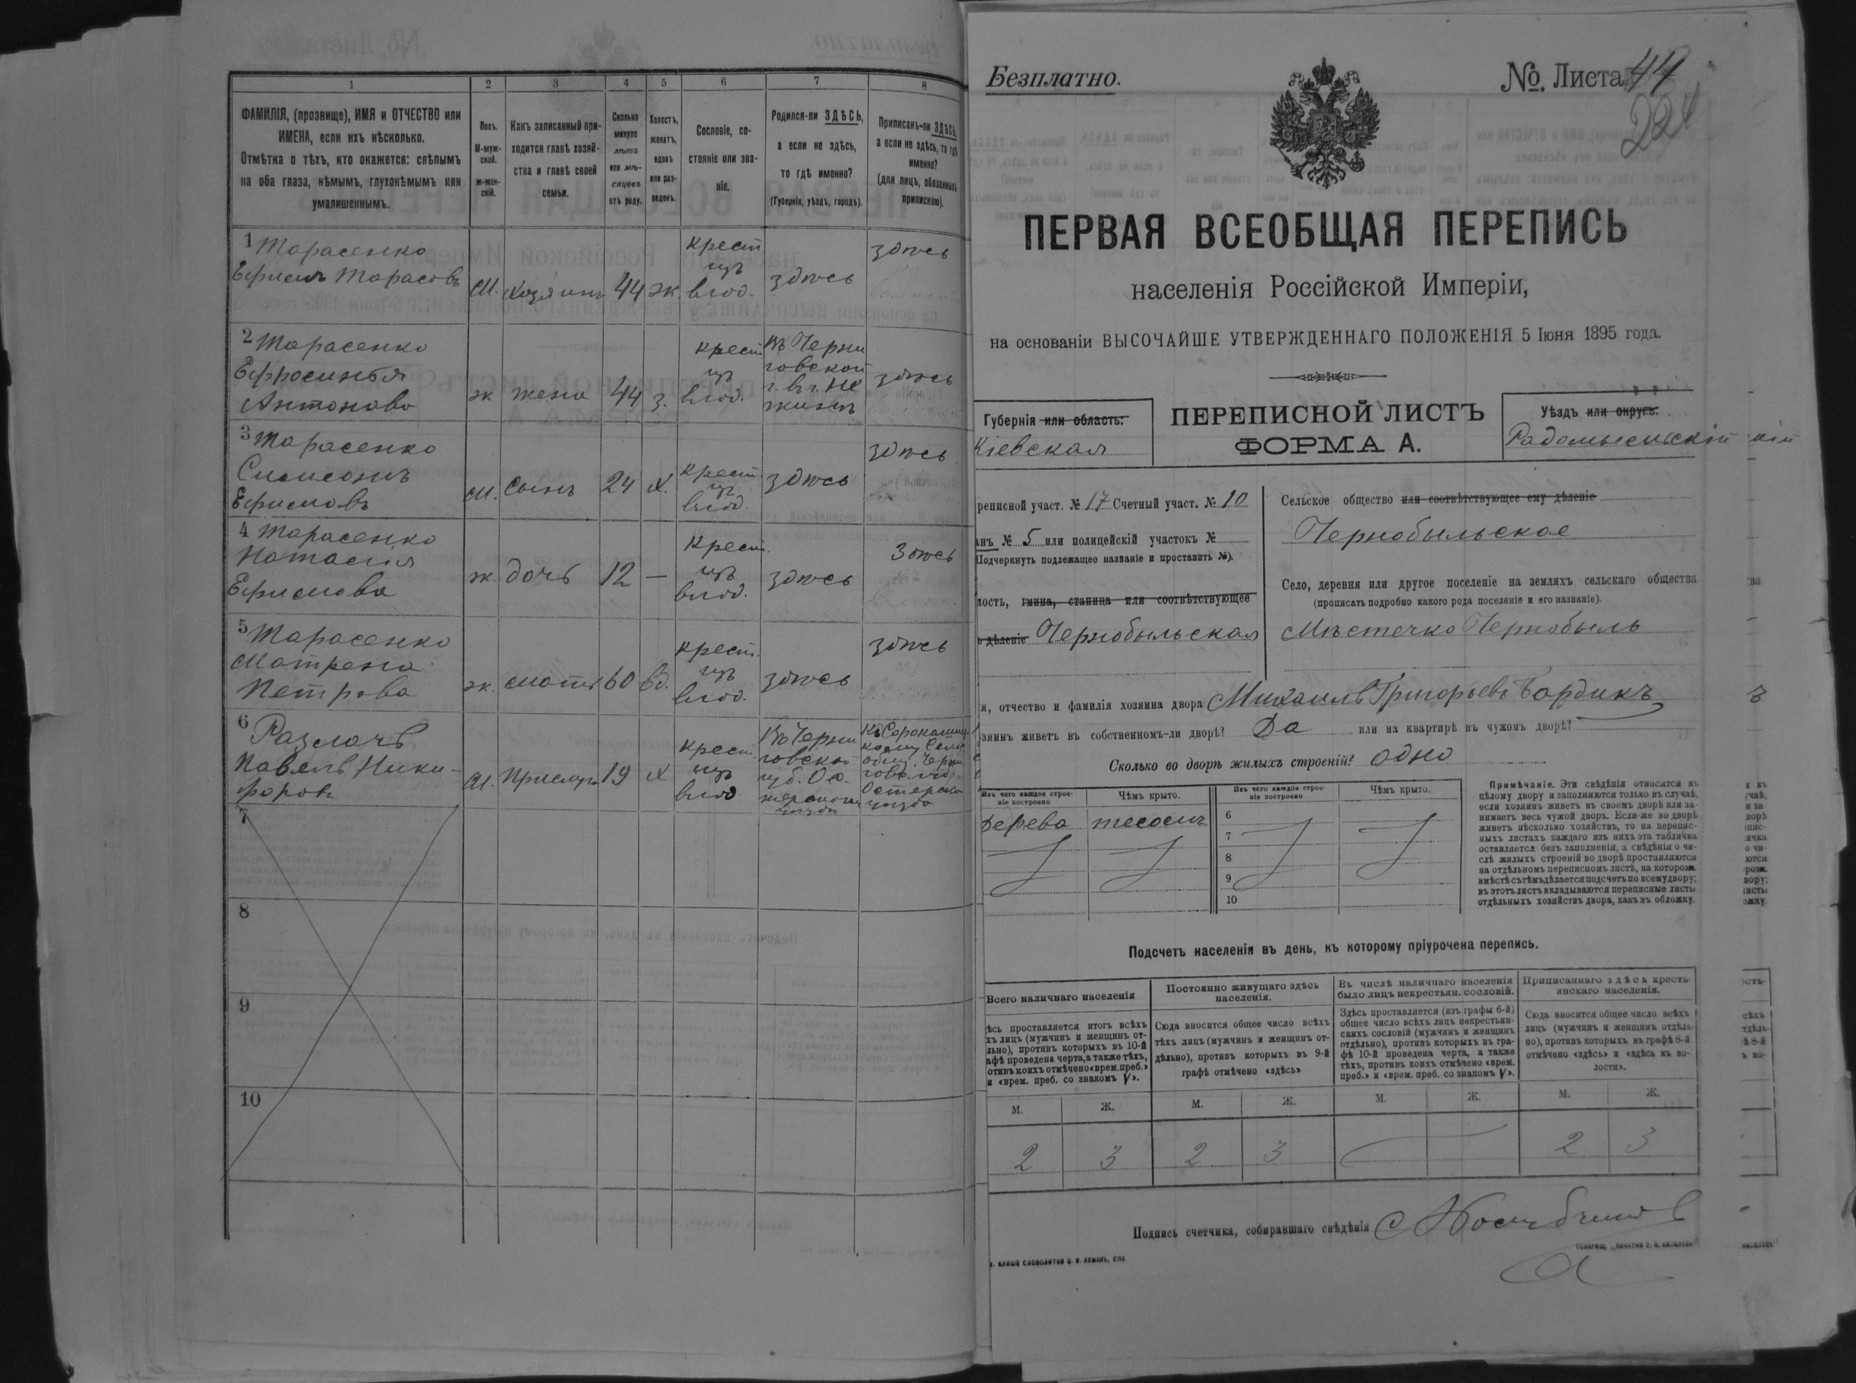 1 2 3 4 5 6 7 8
ФАМИЛІЯ, (прозвище), ИМЯ и ОТЧЕСТВО или
ИМЕНА, если ихъ нѣсколько.
Отмѣтка о тѣхъ, кто окажется: слѣпымъ
на оба глаза, нѣмымъ, глухонѣмымъ или
умалишеннымъ.
Полъ.
М-муж-
ской.
ж-жен-
скій.
Какъ записанный при-
ходится главѣ хозяй-
ства и главѣ своей
семьи.
Сколько
минуло
лѣтъ
или мѣ-
сяцевъ
отъ роду.
Холостъ,
женатъ,
вдовъ
или раз-
веденъ.
Сословіе, со-
стояніе или зва-
ніе.
Родился-ли ЗДѢСЬ,
а если не здѣсь,
то гдѣ именно?
(Губернія, уѣздъ, городъ).
Приписанъ-ли ЗДѢСЬ,
а если не здѣсь, то гдѣ
именно?
(для лицъ, обязанныхъ
припискою).
1 Тарасенко
Ефимъ Тарасовъ
М. хозяинъ 44 ж
крест
изъ
влад.
здѣсь
здѣсь
2 Тарасенко
Ефросинья
Антонова
ж жена 44 з.
крест
изъ
влад.
Въ Черни
говской
г. в г. Не
жинѣ
здѣсь
3 Тарасенко
Симеонъ
Ефимовъ
М. сынъ 24 х.
крест.
изъ
влад.
здѣсь
здѣсь
4 Тарасенко
Натасія
Ефимова
ж дочь 12 —
крест.
изъ
влад.
здѣсь
здѣсь
5 Тарасенко
Матрена
Петрова
ж. мать 60 вд.
крест.
изъ
влад.
здѣсь
здѣсь
6
Павелъ Ники-
форов
М. Прислуга 19 х
крест
изъ
влад
Въ Черни
говской
губ. Ос-
терскомъ
уѣздѣ
7
8
9
10
Безплатно.
№. Листа 44
224
ПЕРВАЯ ВСЕОБЩАЯ ПЕРЕПИСЬ
населенія Россійской Имперіи,
на основаніи ВЫСОЧАЙШЕ УТВЕРЖДЕННАГО ПОЛОЖЕНІЯ 5 Іюня 1895 года.
Губернія или область:
Кіевская
ПЕРЕПИСНОЙ ЛИСТЪ
ФОРМА А.
Уѣздъ или округъ:
Радомысльскій
реписной участ. № 17 Счетный участ. № 10
анъ № 5 или полицейскій участокъ №
Подчеркнуть подлежащее названіе и проставить №).
лость, гмина, станица или соотвѣтствующее
ь дѣленіе Чернобыльская
Сельское общество или соотвѣтствующее ему дѣленіе
Чернобыльское
Село, деревня или другое поселеніе на земляхъ сельскаго общества
(прописать подробно какого рода поселеніе и его названіе).
Мѣстечко Чернобыль
я, отчество и фамилія хозяина двора Михаилъ Григорьевъ Бордикъ
озяинъ живетъ въ собственномъ-ли дворѣ? Да или на квартирѣ въ чужомъ дворѣ?
Сколько во дворѣ жилыхъ строеній? одно
Изъ чего каждое строе-
ніе построено
Чѣмъ крыто.
Изъ чего каждое строе-
ніе построено
Чѣмъ крыто.
Дерева тесомъ
6
7
8
9
10
Примѣчаніе. Эти свѣдѣнія относятся къ
цѣлому двору и заполняются только въ случаѣ,
если хозяинъ живетъ въ своемъ дворѣ или за-
нимаетъ весь чужой дворъ. Если-же во дворѣ
живетъ нѣсколько хозяйствъ, то на перепис-
ныхъ листахъ каждаго изъ нихъ эта табличка
оставляется безъ заполненія, а свѣдѣнія о чи-
слѣ жилыхъ строеній во дворѣ проставляются
на отдѣльномъ переписномъ листѣ, на которомъ
вмѣстѣ съ тѣмъ дѣлается подсчетъ по всему двору;
въ этотъ листъ вкладываются переписные листы
отдѣльныхъ хозяйствъ двора, какъ въ обложку.
Подсчетъ населенія въ день, къ которому пріурочена перепись.
Всего наличнаго населенія
Постоянно живущаго здѣсь
населенія.
Въ числѣ наличнаго населенія
было лицъ некрестьян. сословій.
Приписаннаго здѣсь кресть-
янскаго населенія.
ѣсь проставляется итогъ всѣхъ
хъ лицъ (мужчинъ и женщинъ от-
льно), противъ которыхъ въ 10-й
афѣ проведена черта, а также тѣхъ,
отивъ коихъ отмѣчено «врем. преб.»
и «врем. преб. со знакомъ V».
Сюда вносится общее число всѣхъ
тѣхъ лицъ (мужчинъ и женщинъ от-
дѣльно), противъ которыхъ въ 9-й
графѣ отмѣчено «здѣсь»
Здѣсь проставляется (изъ графы 6-й)
общее число всѣхъ лицъ некрестьян-
скихъ сословій (мужчинъ и женщинъ
отдѣльно), противъ которыхъ въ гра-
фѣ 10-й проведена черта, а также
тѣхъ, противъ коихъ отмѣчено «врем.
преб.» и «врем. преб. со знакомъ V».
Сюда вносится общее число всѣхъ
лицъ (мужчинъ и женщинъ отдѣль-
но), противъ которыхъ въ графѣ 8-й
отмѣчено «здѣсь» и «здѣсь къ во-
лости».
М. Ж. М. Ж. М. Ж. М. Ж.
2 3 2 3 2 3
Подпись счетчика, собиравшаго свѣдѣнія